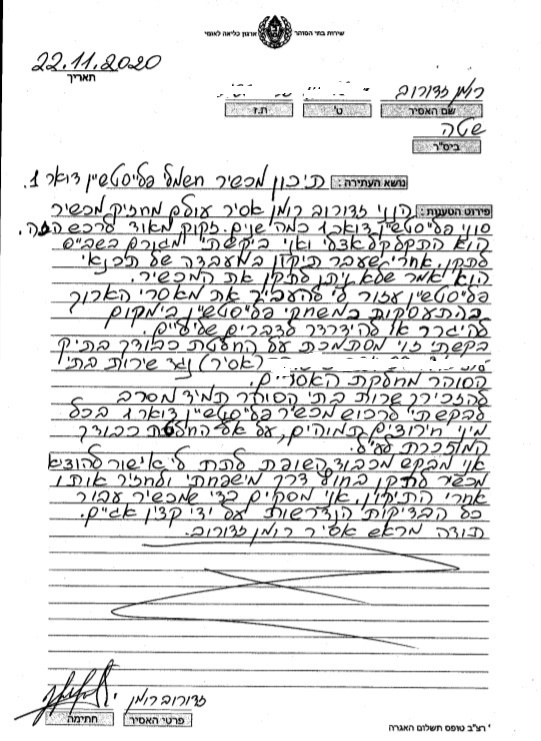 שירות בתי הסוהר ארגון כליאה לאומי
22.11.2020
תאריך
רומן זדורוב
שם האסיר ט' ת.ז
שטה
ביס"ר
נושא העתירה: תיכון מכשיר חשמלי פלייסטשיין דואר 1.
פירוט הטענות: הנני זדורוב רומן אסיר עולם מחזיק מכשיר
סוני פלייסטשיין דואר 1 כמה שנים. זקוק מאוד לרכש הזה.
הוא התקלקל אצלי ואני ביקשתי מגורם בשב"ס
לתקן. אחרי שעבר תיקון במעבדה של תיכנאי
הוא אמר שלא ניתן לתקן את המכשיר.
פלייסטשיין עזור לי להעביר את מאסרי הארוך
בהתעסקות במשחקי פלייסטשיין בימקום
להיגרר או להידרדר לדברים שליליים.
בקשתי זוי מסתמכת על החלטת כבודך בתיק
(אסיר) נגד שירות בתי
הסוהר מחלקת האסירים.
להזכירך שרות בתי הסוהר תמיד מסרב
לבקשתי לרכוש מכשיר פלייסטשיין דואר 1 בכל
מיני תירוצים תמוהים, על אף החלטת כבודך
המוזכרת לעיל.
אני מבקש מכבוד השופט לתת לי אישור להוציא
מכשיר לתקן בחוץ דרך מישפחתי ולחזיר אותו
אחרי התיקון. אני מסקים כדי שמכשיר עבור
כל הבדיקות הנדרשות על ידי קצין אג"ם.
תודה מראש אסיר רומן זדורוב.
זדורוב רומן
פרטי האסיר חתימה
* רצ"ב טופס תשלום האגרה